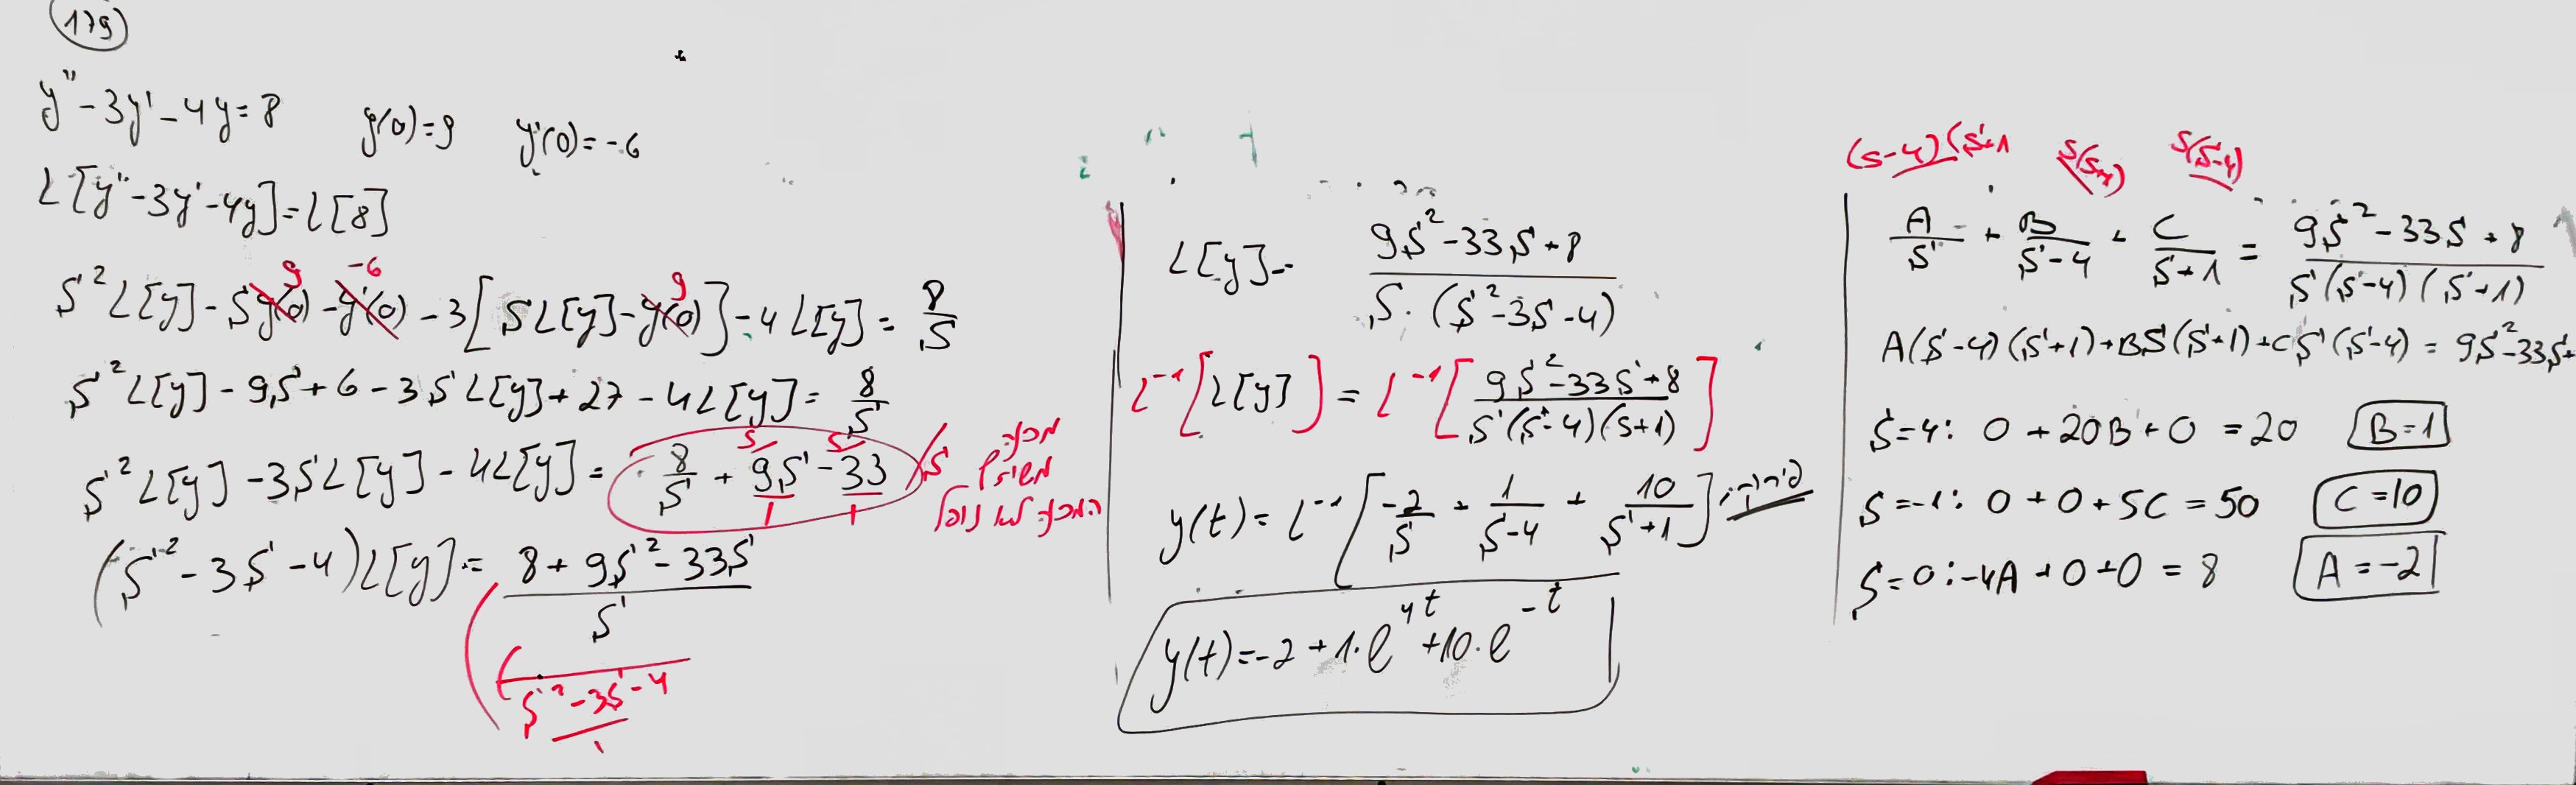 179
y'' - 3y' - 4y = 8   y(0) = 9   y'(0) = -6
L[y'' - 3y' - 4y] = L[8]
9   -6   9
S²L[y] - Sy(0) - y'(0) - 3[SL[y] - y(0)] - 4L[y] = 8/S
S²L[y] - 9S + 6 - 3SL[y] + 27 - 4L[y] = 8/S
S²L[y] - 3SL[y] - 4L[y] = 8/S + 9S/1 - 33/1   /·S
מכנה
משותף
המכנה לא נופל
(S² - 3S - 4)L[y] = (8 + 9S² - 33S)/S
S² - 3S - 4
1
L[y] = (9S² - 33S + 8)/(S·(S² - 3S - 4))
L⁻¹[L[y]] = L⁻¹[(9S² - 33S + 8)/(S(S-4)(S+1))]
y(t) = L⁻¹[-2/S + 1/(S-4) + 10/(S+1)]
y(t) = -2 + 1·e^4t + 10·e^-t
(S-4)(S+1   S(S+1)   S(S-4)
A/S + B/(S-4) + C/(S+1) = (9S² - 33S + 8)/(S(S-4)(S+1))
A(S-4)(S+1) + BS(S+1) + CS(S-4) = 9S² - 33S +
S=4: 0 + 20B + 0 = 20   B=1
S=-1: 0 + 0 + 5C = 50   C=10
S=0: -4A + 0 + 0 = 8   A=-2